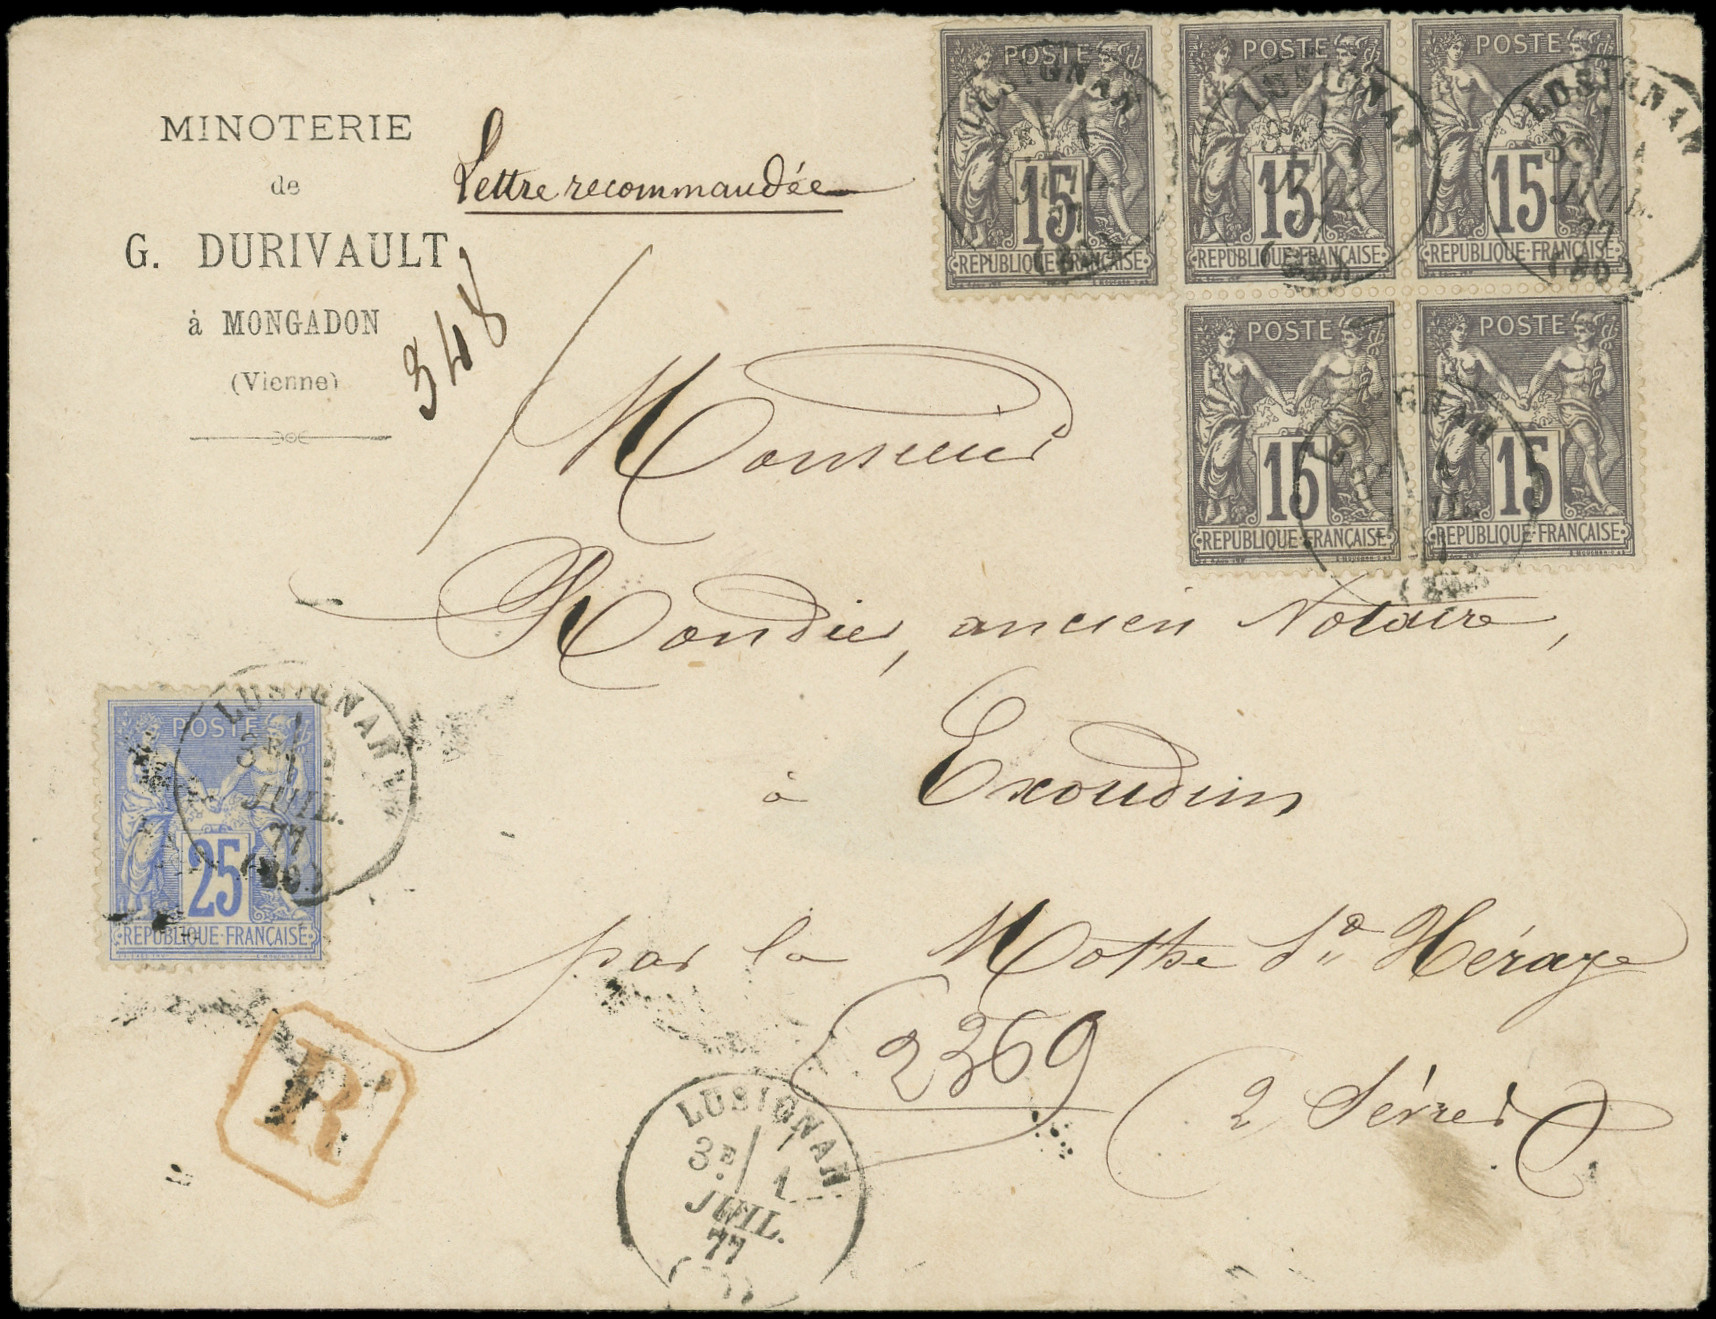 MINOTERIE
de
G. DURIVAULT
à MONGADON
(Vienne)
Lettre recommandée
348
POSTE
15
REPUBLIQUE FRANÇAISE
POSTE
15
REPUBLIQUE FRANÇAISE
POSTE
15
REPUBLIQUE FRANÇAISE
POSTE
15
REPUBLIQUE FRANÇAISE
POSTE
15
REPUBLIQUE FRANÇAISE
LUSIGNAN
LUSIGNAN
LUSIGNAN
3E
JUIL.
77
Monsieur
Rondier, ancien Notaire,
à Exoudun
par la Mothe St Héraye
2369
2 Sèvres
POSTE
25
REPUBLIQUE FRANÇAISE
LUSIGNAN
3E 1
JUIL.
77
R
LUSIGNAN
3E 1
JUIL.
77